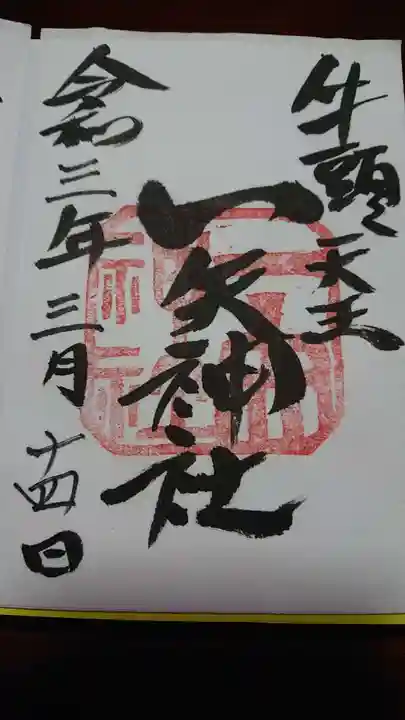 牛頭天王
一矢神社
令和三年三月十四日